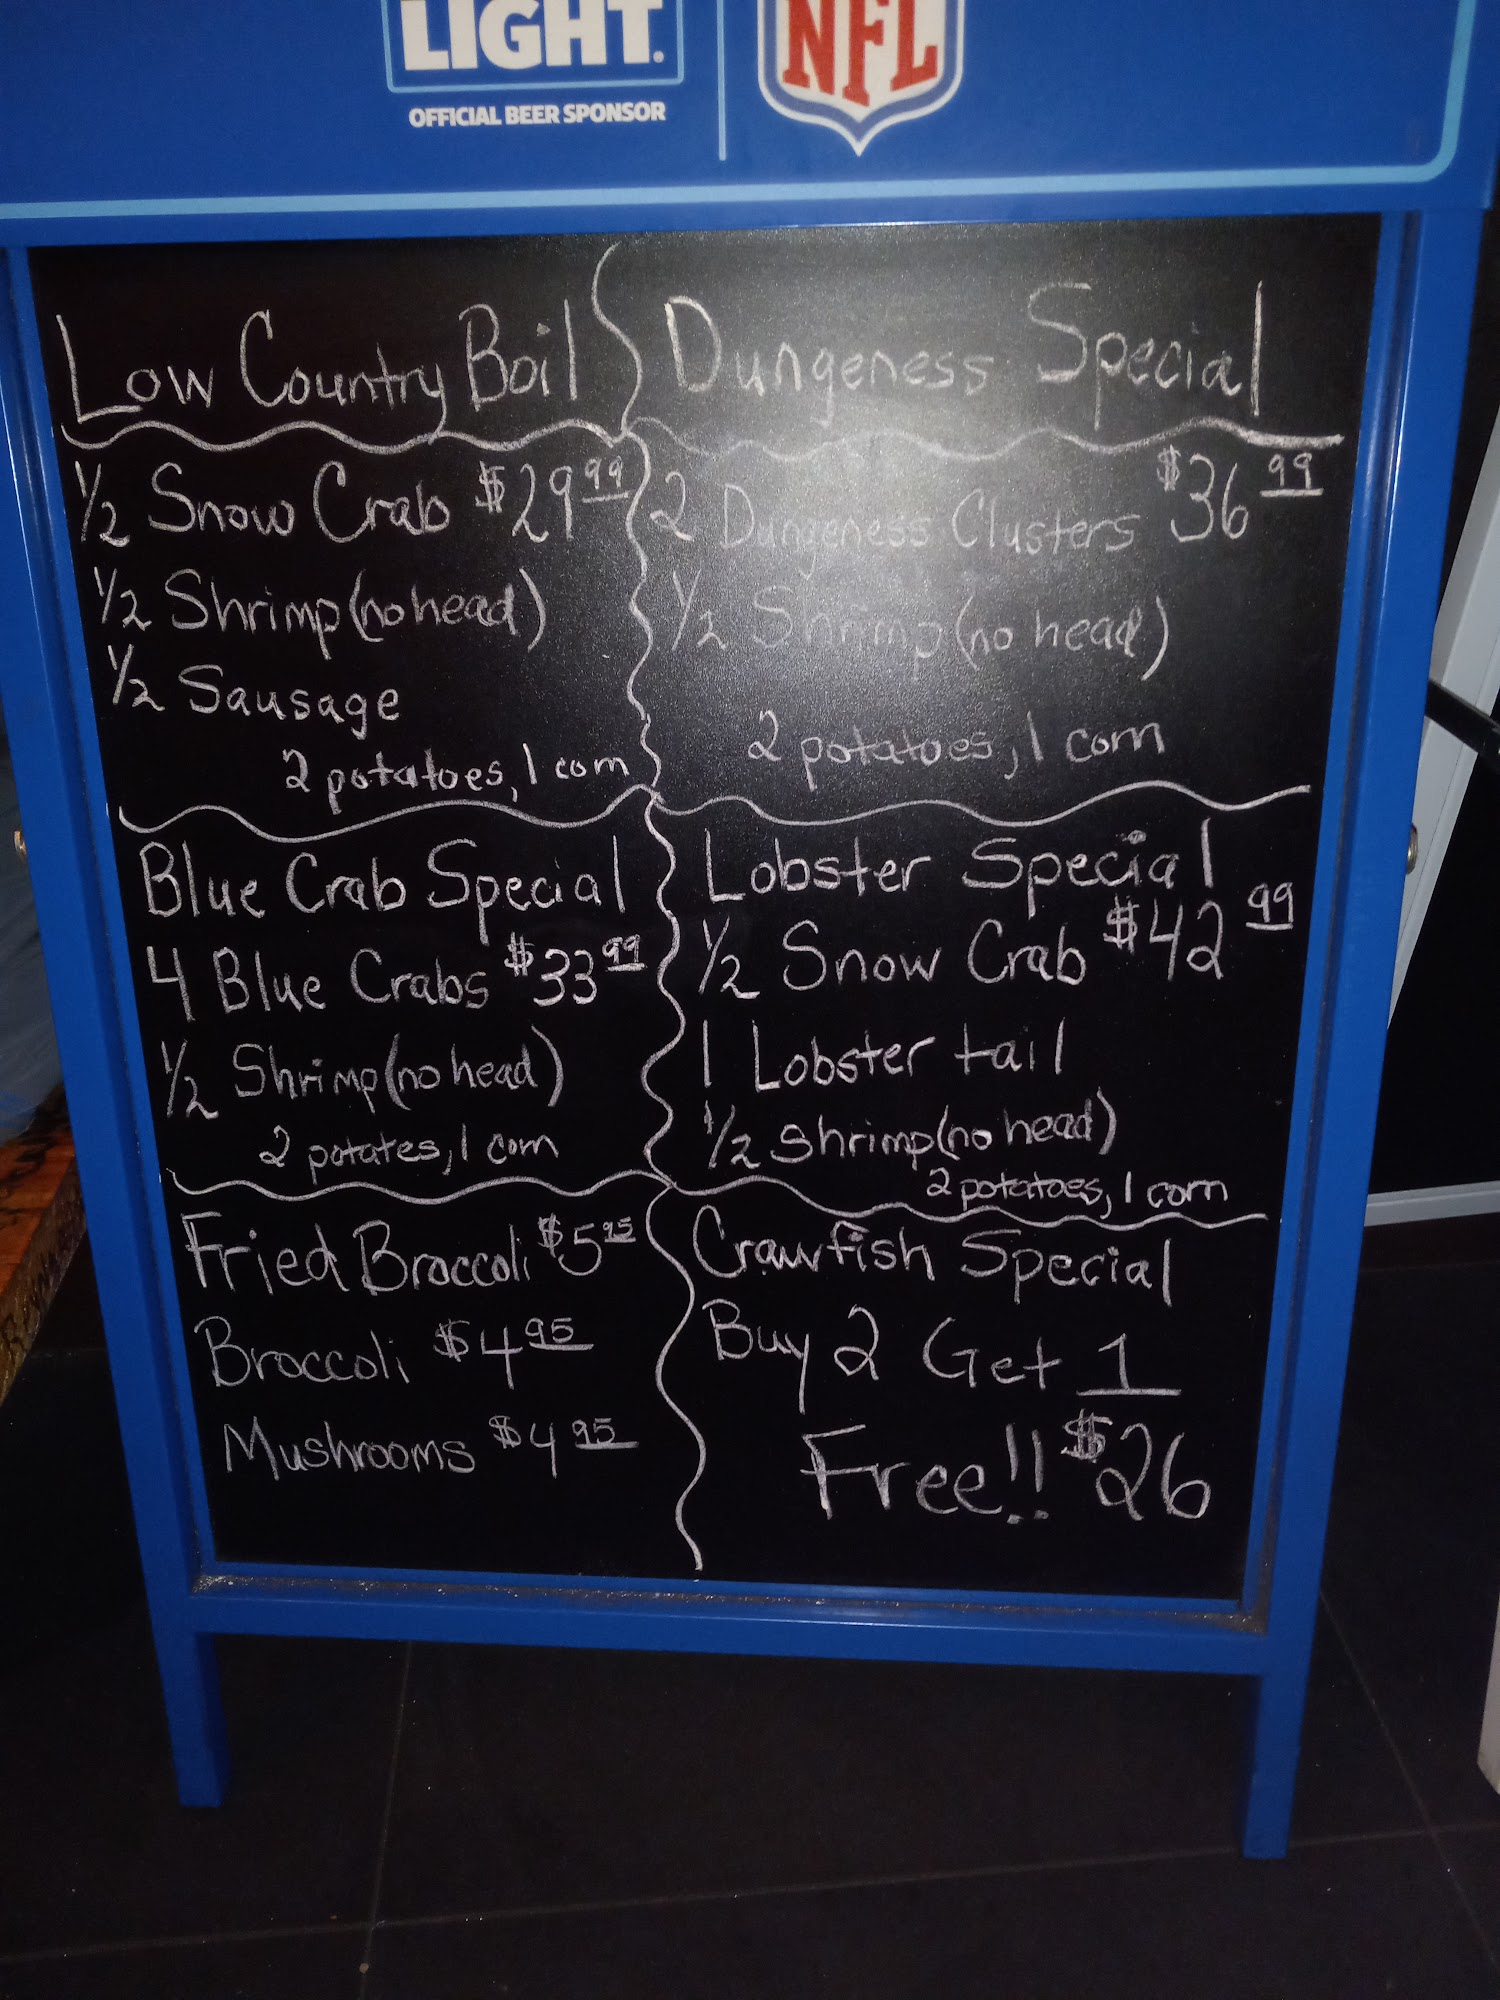 LIGHT.
OFFICIAL BEER SPONSOR
NFL
Low Country Boil
1/2 Snow Crab $29 99
1/2 Shrimp (no head)
1/2 Sausage
2 potatoes, 1 corn
Dungeness Special
2 Dungeness Clusters $36 99
1/2 Shrimp (no head)
2 potatoes, 1 corn
Blue Crab Special
4 Blue Crabs $33 99
1/2 Shrimp (no head)
2 potates, 1 corn
Lobster Special
1/2 Snow Crab $42 99
1 Lobster tail
1/2 Shrimp (no head)
2 potatoes, 1 corn
Fried Broccoli $5 95
Broccoli $4 95
Mushrooms $4 95
Crawfish Special
Buy 2 Get 1
Free!! $26